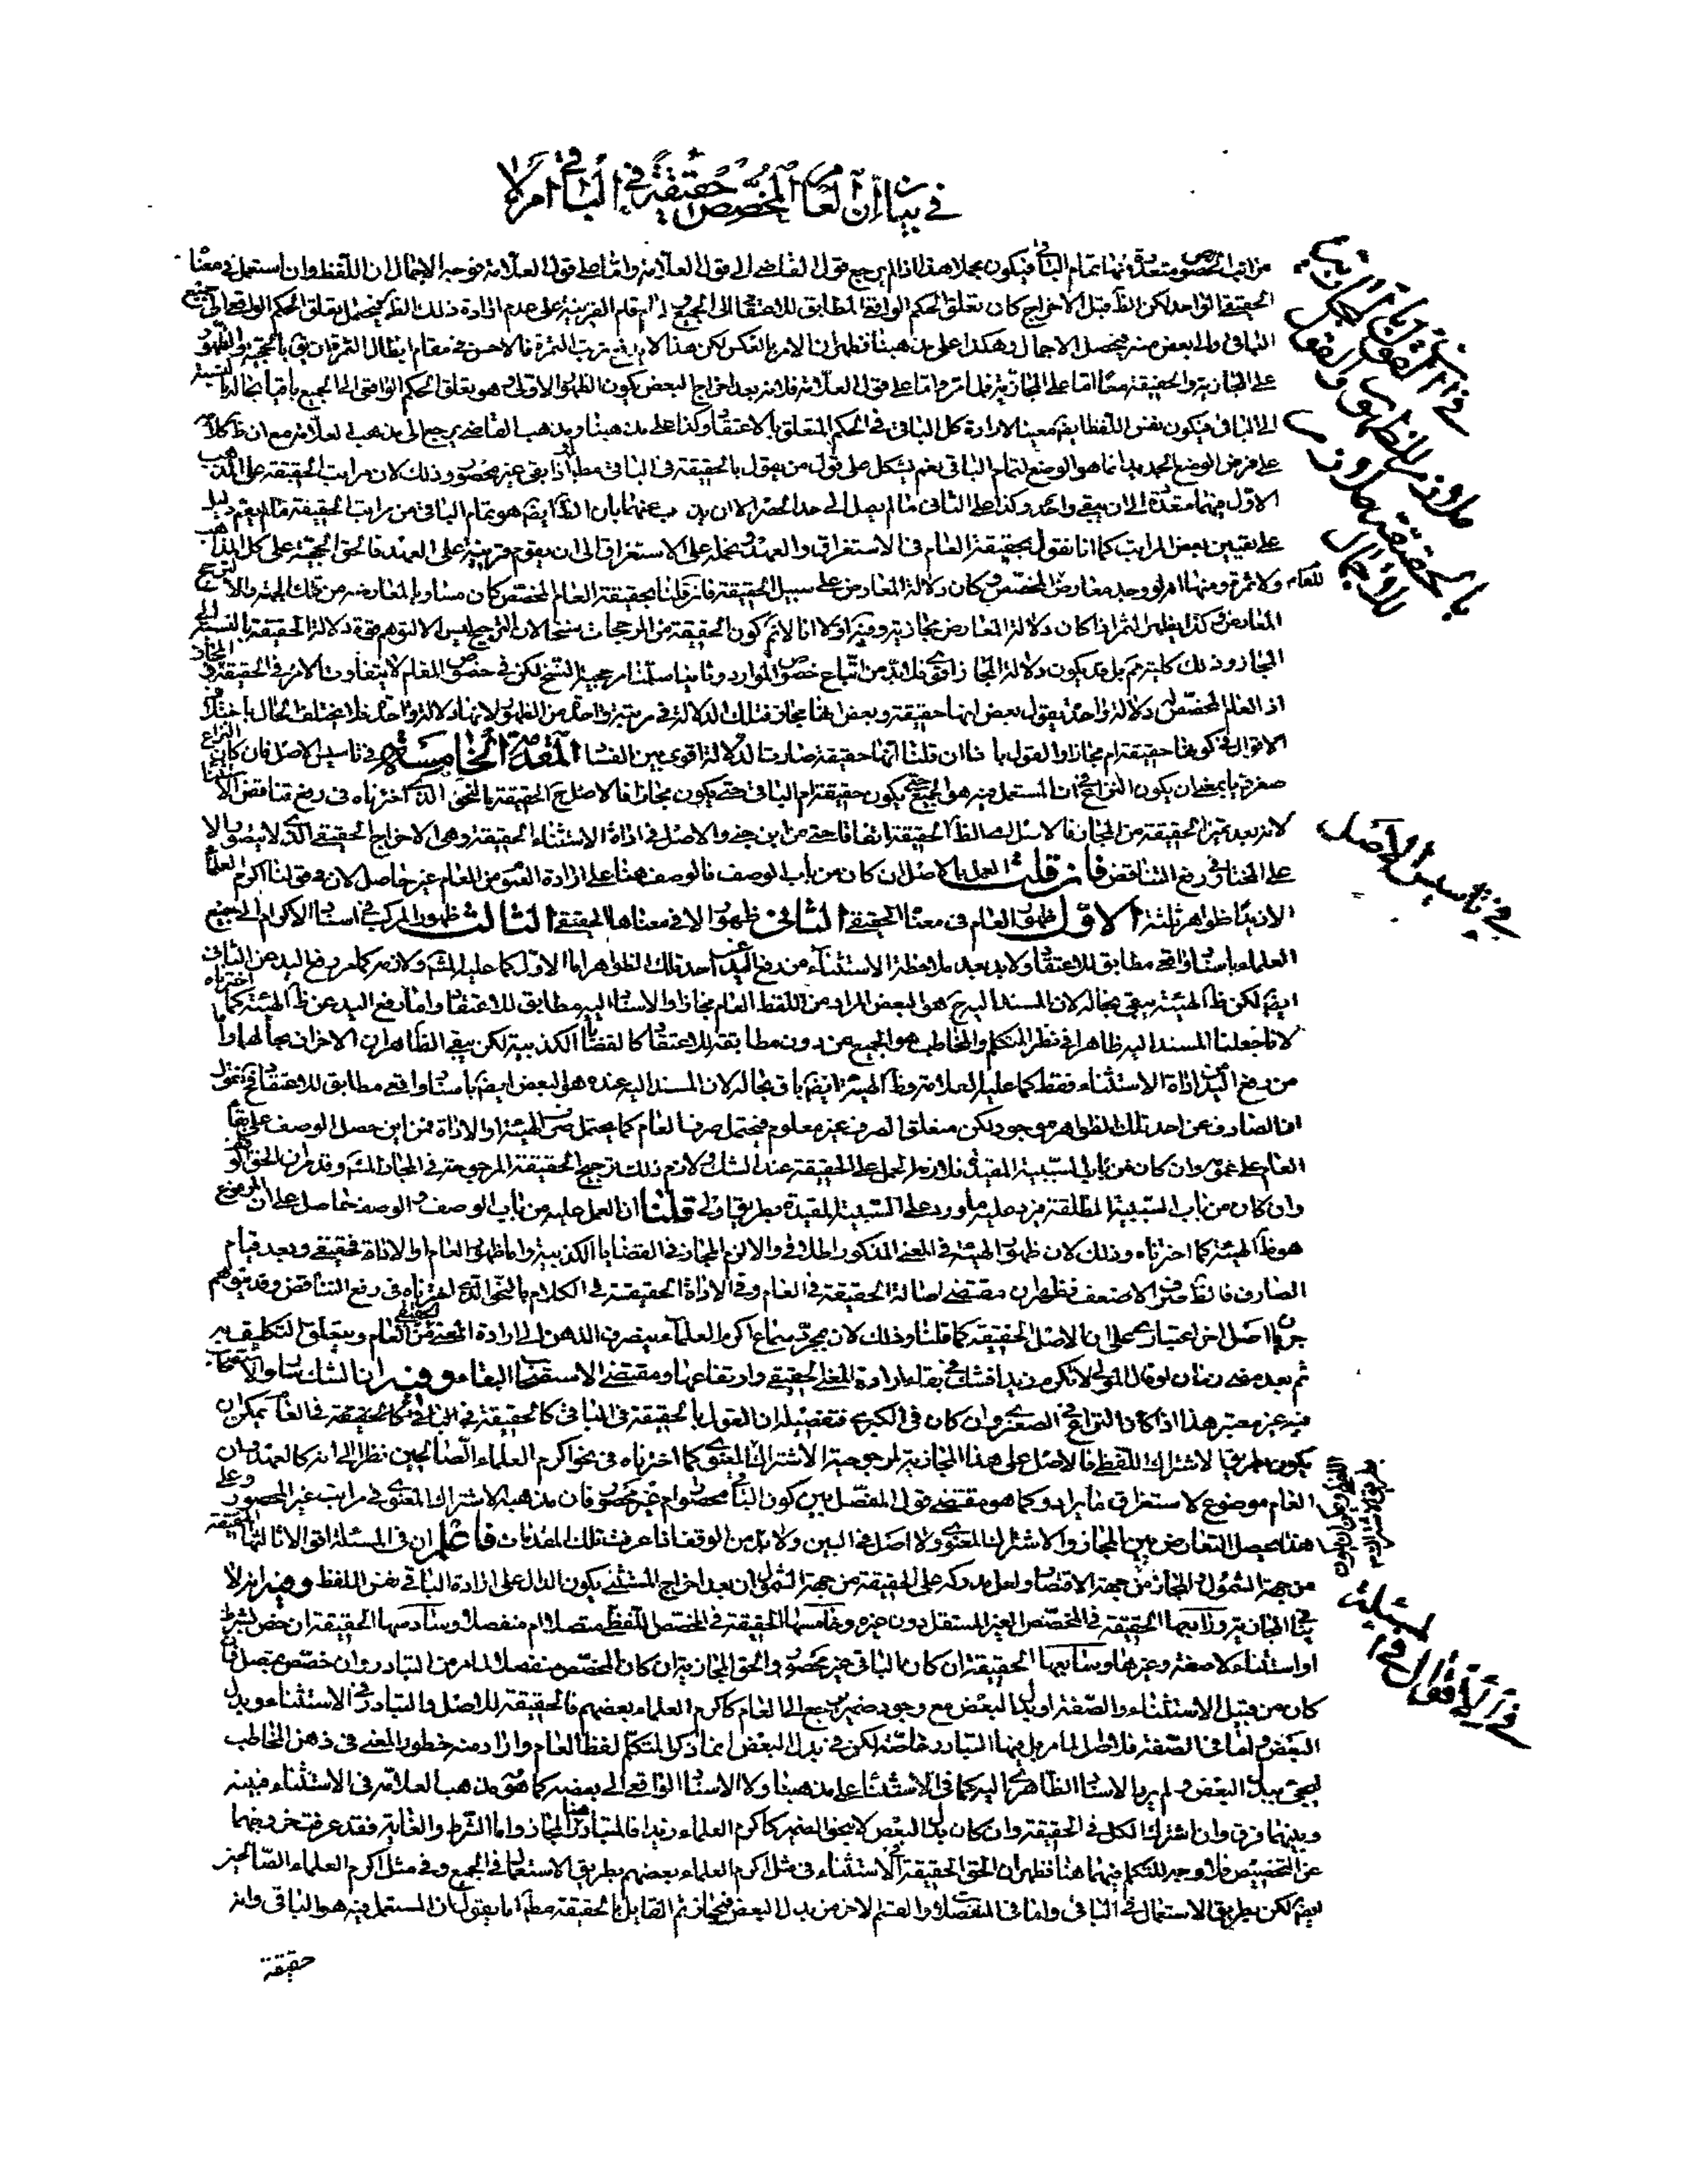 في بيان ان العام المخصص حقيقة في الباقي ام لا
مراتب الخصوص متعددة منها تمام الباقي فيكون مجملا هذا اذا لم يرجع قول القاضي الى قول العلامة واما على قول العلامة فوجه الاجمال ان اللفظ وان استعمل في معناه
الحقيقي الواحد لكن الظ قبل الاخراج كان تعلق الحكم الواقع المطابق للاعتقاد الى الجميع قام القرينة على عدم ارادة ذلك الظ فيحتمل تعلق الحكم الواقعي الى جميع
الباقي والى بعض منه فيحصل الاجمال وهكذا على مذهبنا فظهر ان الامر بالعكس لكن هذا لا ترتب الثمرة فالاحسن في مقام ابطال الثمرة ان يق بالحجية والظهور
على المجازية والحقيقة معا اما على المجازية فلما مر واما على قول العلامة فلانه بعد اخراج البعض يكون الظهور الاولى وهو تعلق الحكم الواقعي الى الجميع باقيا بحاله بالنسبة
الى الباقي فيكون نفس اللفظ ايضا معينا لارادة كل الباقي في الحكم المتعلق بالاعتقاد وكذا على مذهبنا ومذهب القاضي يرجع الى مذهب العلامة مع ان ظ كلامه
على فرض الوضع الجديد انما هو الوضع لتمام الباقي نعم يشكل على قول من يقول بالحقيقة في الباقي مط او اذا بقي غير محصور وذلك لان مراتب الحقيقة على المذهب
الاول منهما متعددة الى ان يبقى واحد وكذا على الثاني ما لم يصل الى حد الحصر الا ان عنهما بان الظ ايضا هو تمام الباقي من مراتب الحقيقة ما لم يقم دليل
على تعيين بعض المراتب كما انا نقول بحقيقة العام في الاستغراق والعهد ونحمله على الاستغراق الى ان يقوم قرينة على العهد فالحق الحجية على كل المذاهب
للعام ولا ثمرة ومنها انه لو وجد معارض للمخصص وكان دلالة المعارض على سبيل الحقيقة فان قلنا بحقيقة العام المخصص كان مساويا للمعارضه من تلك الجهة والا لترجح
المعارض وكذا يظهر الثمرة اذا كان دلالة المعارض مجازية وفيه اولا انا لانم كون الحقيقة من المرجحات لان الترجيح ليس الا لتوهم قوة دلالة الحقيقة بالنسبة الى
المجاز وذلك كلية مم بل قد يكون دلالة المجاز اقوى فلابد من اتباع خصوص الموارد وثانيا سلمنا مرجحية لكن في خصوص المقام لا يتفاوت الامر في الحقيقة والمجاز
اذ العام المخصص له دلالة واحدة يقول بعض انها حقيقة وبعض انها مجاز فتلك الدلالة في مرتبة واحدة من الظهور لانها دلالة واحدة فلا يختلف الحال باختلاف
الاقوال في كونها حقيقة ام مجازا والقول بانا ان قلنا انها حقيقة صارت الدلالة اقوى بين الفساد المقدمة الخامسة في تاسيس الاصل فان كان النزاع
صغرويا بمعنى ان يكون النزاع في ان المستعمل فيه هو الجميع حتى يكون حقيقة ام الباقي حتى يكون مجازا فالاصل ح الحقيقة بالنحو الذي اخترناه في رفع تناقض الاستثناء
لانه بعد تميز الحقيقة من المجاز فالاصل اصالة الحقيقة اتفاقا حتى من ابن جني والاصل في اداة الاستثناء الحقيقة وهي الاخراج الحقيقي الذي لا يتصور الا
على المختار في رفع التناقض فان قلت العمل بالاصل ان كان من باب الوصف فالوصف هنا على ارادة العموم من العام غير حاصل لان في قولنا اكرم العلماء
الا زيدا ظواهر ثلثة الاول ظهور العام في معناه الحقيقي الثاني ظهور الا في معناها الحقيقي الثالث ظهور المركب في اسناد الاكرام الى جميع
العلماء باسناد واقعي مطابق للاعتقاد ولابد بعد ملاحظة الاستثناء من رفع اليد عن احد تلك الظواهر اما الاول كما عليه المش ولازمه كما مر رفع اليد عن الثاني
ايضا لكن ظ الهيئة يبقى بحاله لان المسند اليه ح هو البعض المراد من اللفظ العام مجازا والاسناد اليه مطابق للاعتقاد واما رفع اليد عن ظ الهيئة كما اخترناه
لانا جعلنا المسند اليه ظاهرا في نظر المتكلم والمخاطب هو الجميع من دون مطابقة للاعتقاد كالقضايا الكذبية لكن يبقى الظاهران الاخران بحالهما واما
من رفع اليد عن اداة الاستثناء فقط كما عليه العلامة وظ الهيئة ايضا باق بحاله لان المسند اليه عنده هو البعض ايضا باسناد واقعي مطابق للاعتقاد فح نقول
ان الصارف عن احد تلك الظواهر موجود لكن متعلق الصرف غير معلوم فيحتمل صرف العام كما يحتمل صرف الهيئة او الاداة فمن اين حصل الوصف على بقاء
العام على عمومه وان كان من باب السببية المقيدة فلازمه الحمل على الحقيقة عند الشك ولازم ذلك ترجيح الحقيقة المرجوحة في المجاز المش وقد مر ان الحق الوقف
وان كان من باب السببية المطلقة فيرد عليه ما ورد على السببية المقيدة بطريق اولى قلنا ان العمل عليه من باب الوصف والوصف حاصل على ان المرفوع
هو ظ الهيئة كما اخترناه وذلك لان ظهور الهيئة في المعنى المذكور اطلاقي والا لزم المجاز في القضايا الكذبية واما ظهور العام او الاداة فحقيقي وبعد قيام
الصارف فالظ صرف الاضعف فظهر ان مقتضى اصالة الحقيقة في العام وفي الاداة الحقيقة في الكلام بالنحو الذي اخترناه في رفع التناقض وقد يتوهم
جريان اصل اخر اعتباري على ان الاصل الحقيقة كما قلنا وذلك لان بمجرد سماع اكرم العلماء ينصرف الذهن الى ارادة المعنى الحقيقي من العام ويتعلق التكليف به
ثم بعد مضي زمان لو قال المولى لا تكرم زيدا فشك في بقاء ارادة المعنى الحقيقي وارتفاعها ومقتضى الاستصحاب البقاء وفيه ان الشك سار والاستصحاب
فيه غير معتبر هذا اذا كان النزاع في الصغرى وان كان في الكبرى فتفصيله ان القول بالحقيقة في الباقي كالحقيقة في العام يمكن ان
يكون بطريق الاشتراك اللفظي فالاصل على هذا المجازية لمرجوحية الاشتراك المعنوي كما اخترناه في نحو اكرم العلماء الصالحين نظرا الى انه كالعهد وان
العام موضوع لاستغراق ما يراد وكما هو مقتضى قول المفصل بين كون الباقي محصورا ام غير محصور فان مذهبه الاشتراك المعنوي في مراتب غير المحصور وعلى
هذا يحصل التعارض بين المجاز والاشتراك المعنوي ولا اصل في البين ولابد من الوقف اذا عرفت تلك المقدمات فاعلم ان في المسئلة اقوالا ثالثها الحقيقة
من جهة الشمول والمجاز من جهة الاقتصار ولعل مدركه على الحقيقة من جهة الشمول ان بعد اخراج المستثنى يكون الدال على ارادة الباقي نفس اللفظ وفيه انه لا
ينافي المجازية ورابعها الحقيقة في المخصص الغير المستقل دون غيره وخامسها الحقيقة في المخصص اللفظي متصلا ام منفصلا وسادسها الحقيقة ان خص بشرط
او استثناء لا صفة وغيرها وسابعها الحقيقة ان كان الباقي غير محصور والحق المجازية ان كان المخصص منفصلا لما مر من التبادر وان خصص بمتصل فان
كان من قبيل الاستثناء والصفة او بدل البعض مع وجود ضمير يرجع الى العام كاكرم العلماء بعضهم فالحقيقة للاصل والتبادر في الاستثناء وبدل
البعض واما في الصفة فلا اصل لما مر بل فيها التبادر خاصة لكن في بدل البعض انما ذكر المتكلم لفظ العام واراد منه خطور المعنى في ذهن المخاطب
ليجيء ببدل البعض ولم يرد الاسناد الظاهري اليه كما في الاستثناء على مذهبنا ولا الاسناد الواقعي الى بعضه كما هو مذهب العلامة في الاستثناء فبينه
وبينهما فرق وان اشترك الكل في الحقيقة وان كان بدل البعض لا بنحو الضمير كاكرم العلماء زيدا فالمتبادر هنا المجاز واما الشرط والغاية فقد عرفت خروجهما
عن التخصيص فلا وجه للتكلم فيهما هنا فظهر ان الحق الحقيقة في الاستثناء في مثل اكرم العلماء بعضهم بطريق الاستعمال في الجميع وفي مثل اكرم العلماء الصالحين
ايضا لكن بطريق الاستعمال في الباقي واما في المنفصلات والقسم الاخر من بدل البعض فمجاز ثم القايل بالحقيقة مط اما يقول بان المستعمل فيه هو الباقي وانه
حقيقة
في تاسيس الاصل
في الاقوال في المسئلة